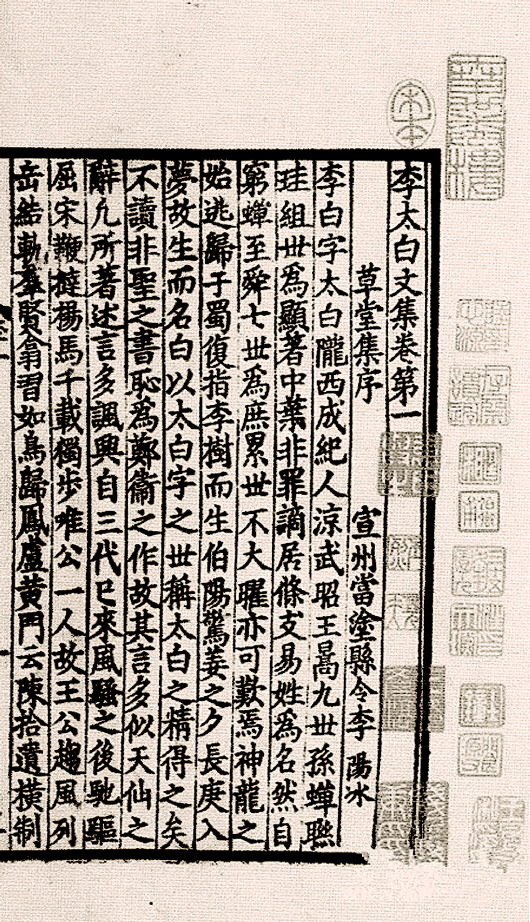 李太白文集卷第一
草堂集序
宣州當塗縣令李陽冰
李白字太白隴西成紀人涼武昭王暠九世孫蟬聮
珪組世爲顯著中葉非罪謫居條支易姓爲名然自
窮蟬至舜七世爲庶累世不大曜亦可歎焉神龍之
始逃歸于蜀復指李樹而生伯陽驚姜之夕長庚入
夢故生而名白以太白字之世稱太白之精得之矣
不讀非聖之書恥爲鄭衞之作故其言多似天仙之
辭凡所著述言多諷興自三代已來風騷之後馳驅
屈宋鞭撻揚馬千載獨步唯公一人故王公趨風列
岳結軌羣賢翕習如鳥歸鳳盧黃門云陳拾遺橫制